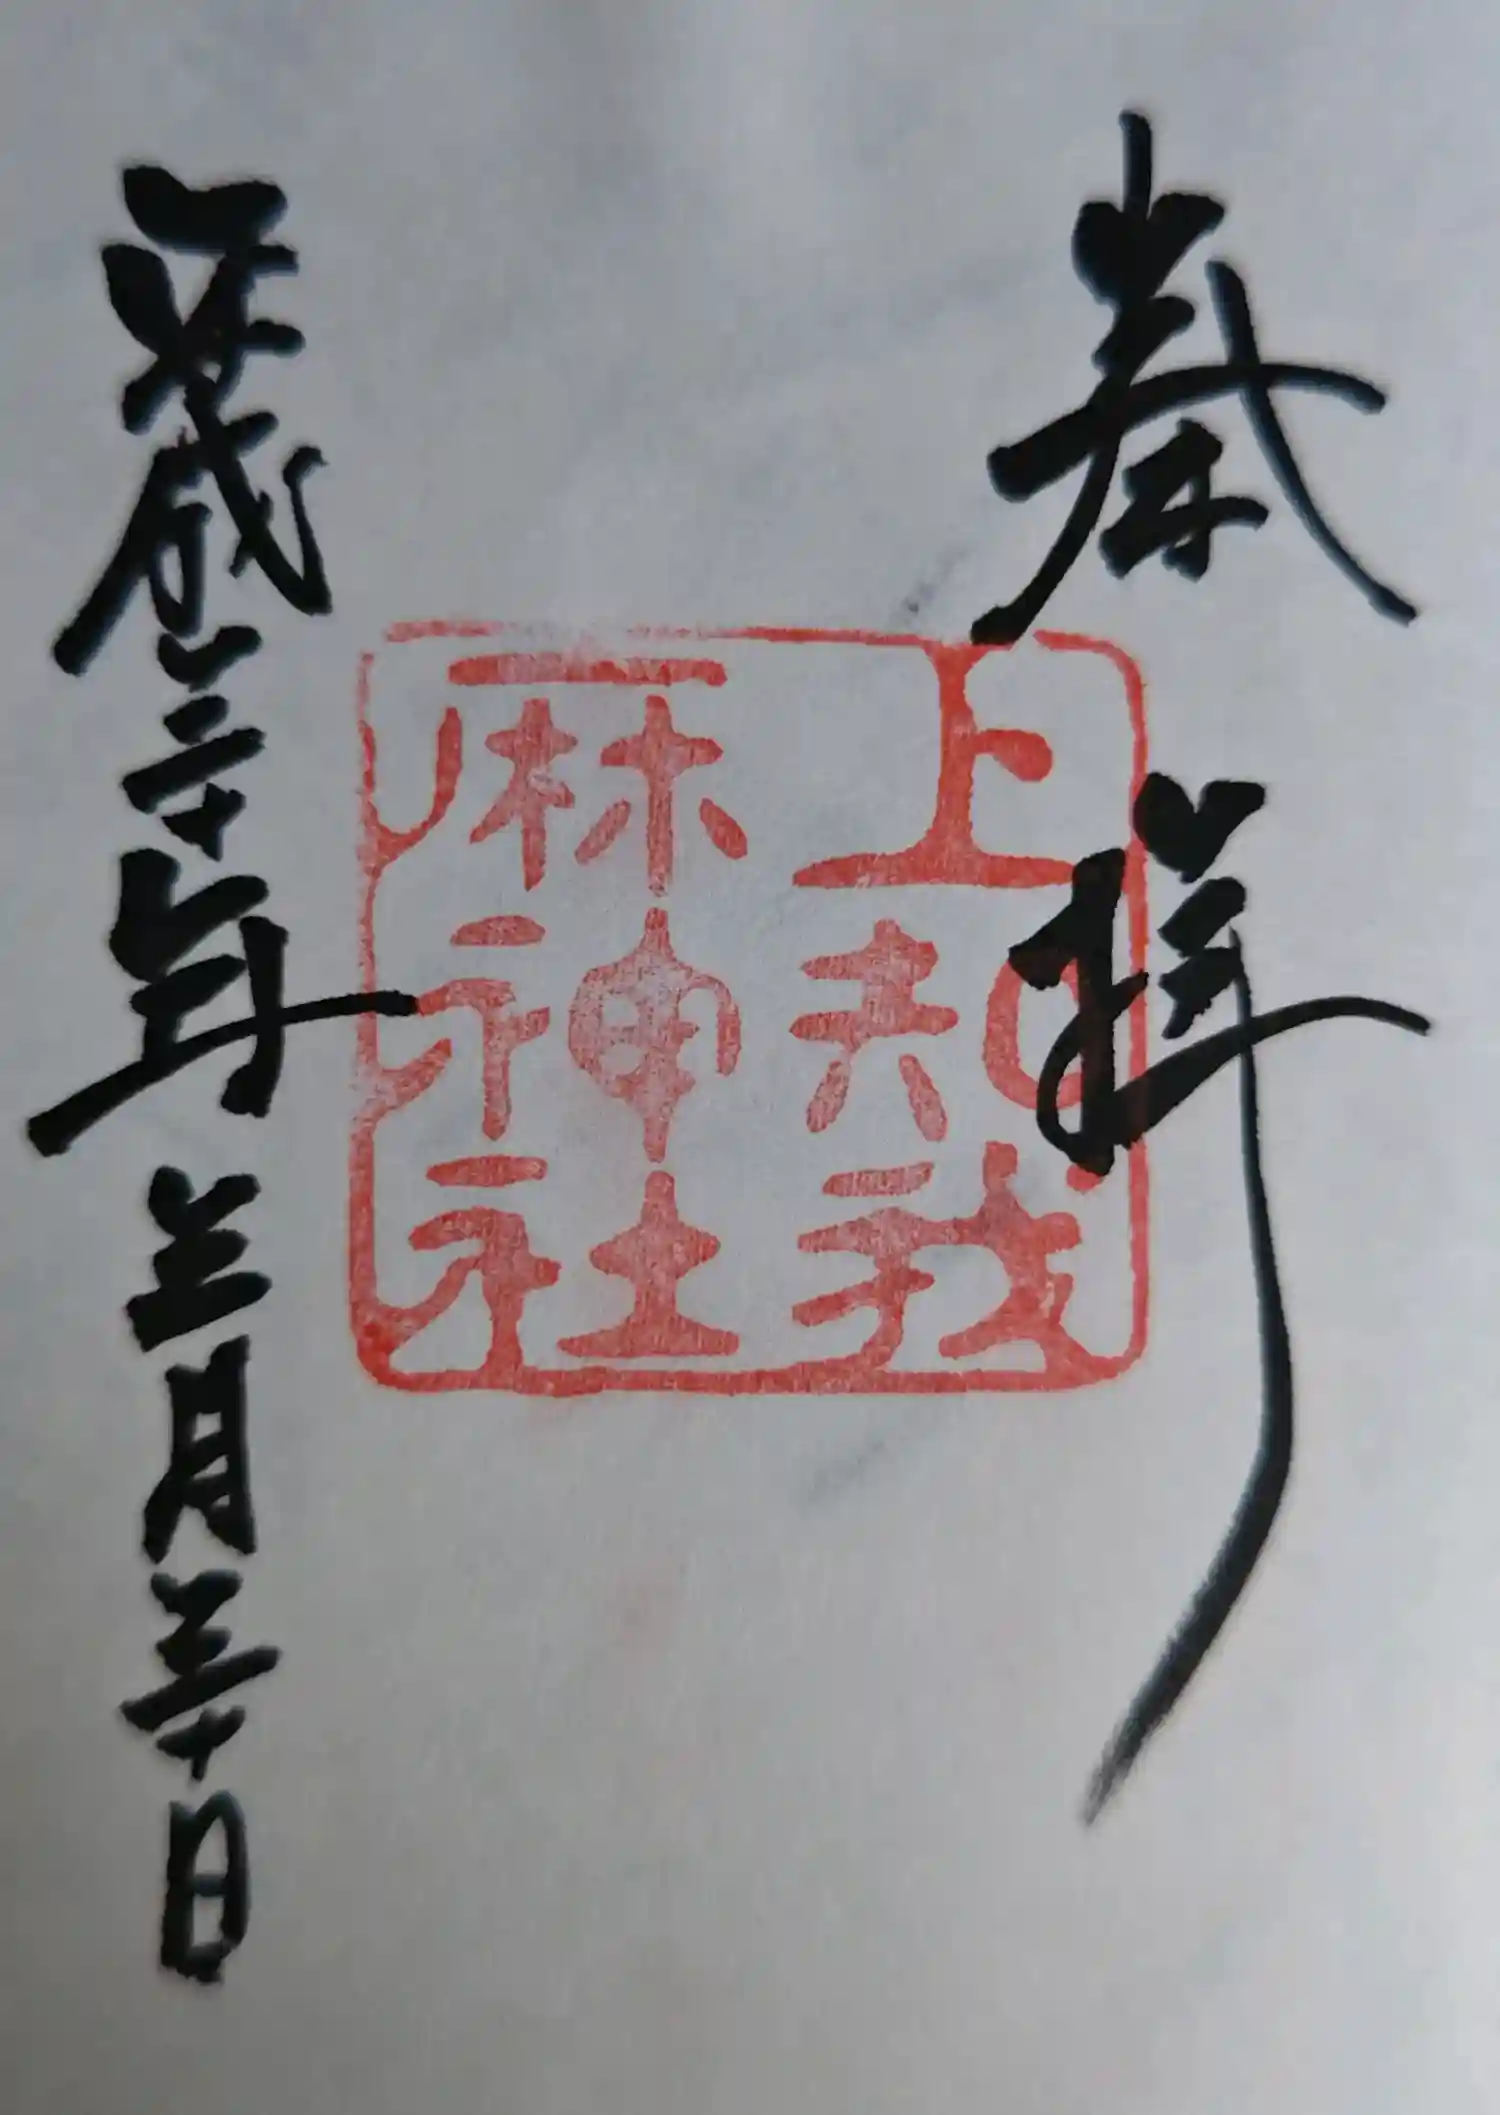 奉拝
上知我
麻神社
平成三十年三月三十日